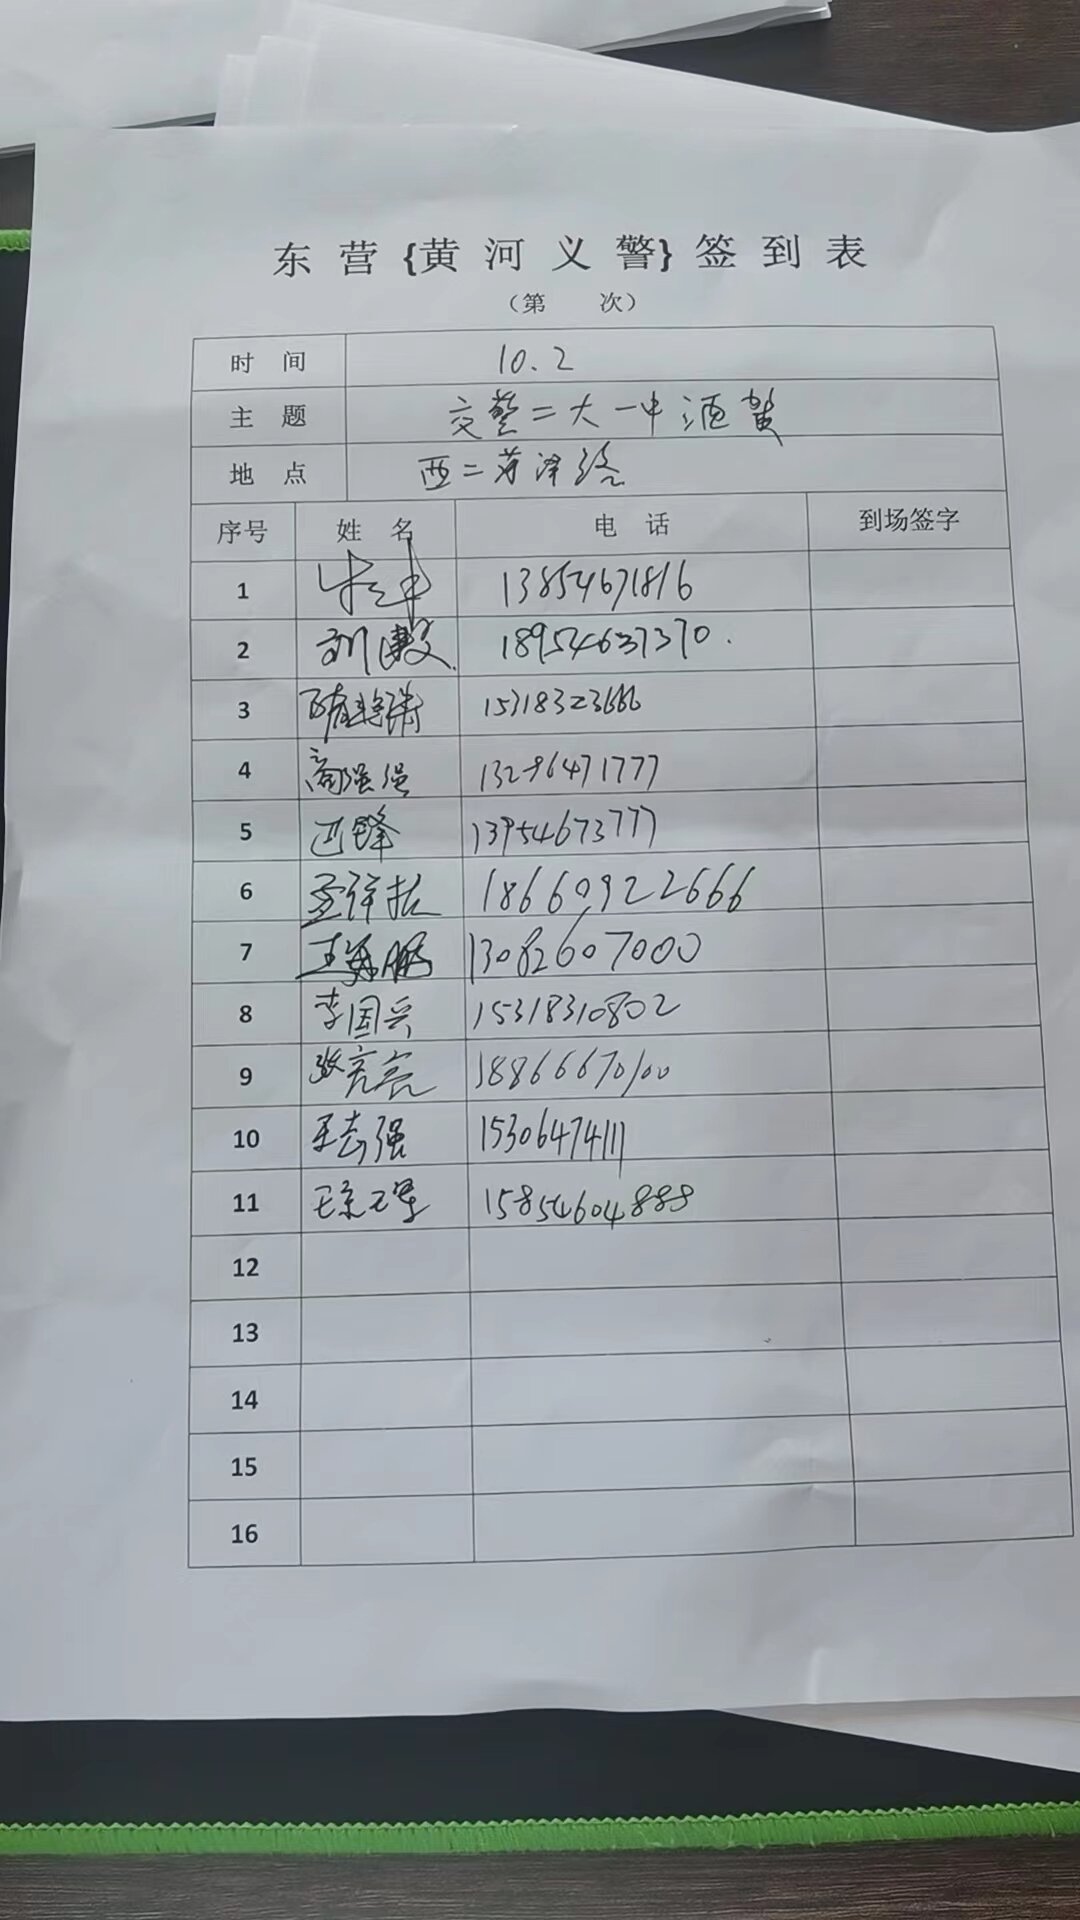 东营{黄河义警}签到表
（第 次）
时间 10.2
主题 交警二大一中酒驾
地点 西二菏泽路
序号 姓名 电话 到场签字
1 13854671816
2 刘 18954637370.
3 15318323666
4 商强强 13296471777
5 巴锋 13954673777
6 18660922666
7 王 鹏 13082607000
8 李国兴 15318310802
9 张亮亮 18866670100
10 王志强 15306474111
11 15854604888
12
13
14
15
16